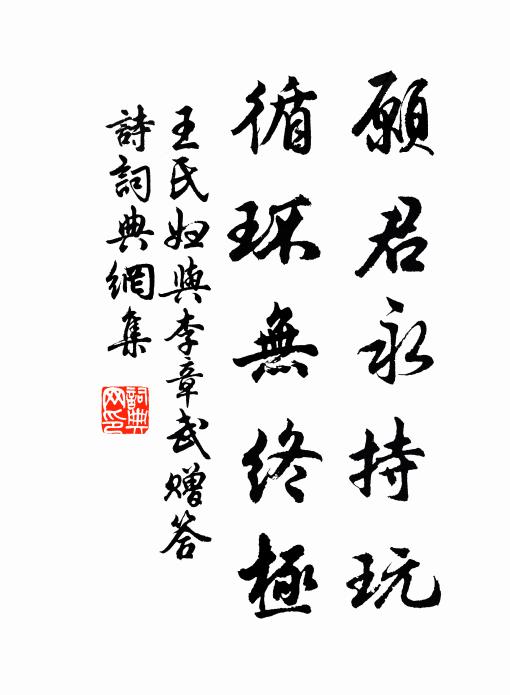 願君永持玩
循环無終極
王氏妇與李章武赠答
詩詞典網集
詞典网印